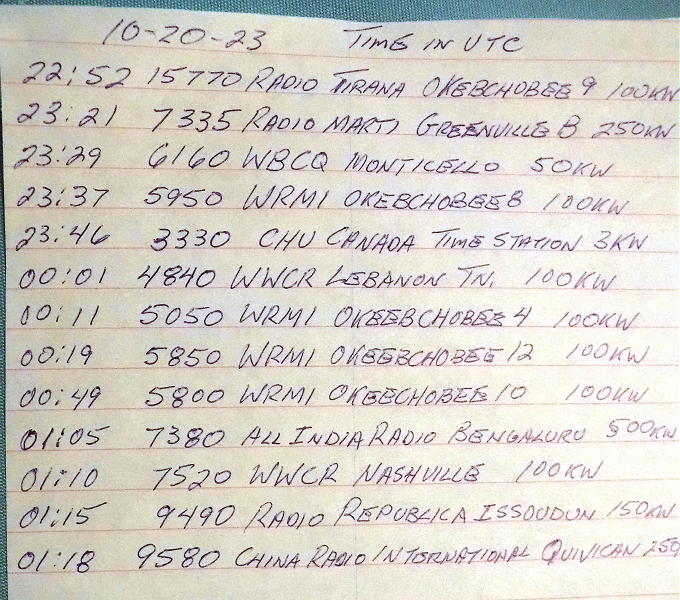 10-20-23 TIME IN UTC
22:52 15770 RADIO TIRANA OKEBCHOBEE 9 100KW
23:21 7335 RADIO MARTI GREENVILLE B 250KW
23:29 6160 WBCQ MONTICELLO 50KW
23:37 5950 WRMI OKEBCHOBEE 8 100KW
23:46 3330 CHU CANADA TIME STATION 3KW
00:01 4840 WWCR LEBANON TN. 100KW
00:11 5050 WRMI OKEEBCHOBEE 4 100KW
00:19 5850 WRMI OKEEBCHOBEE 12 100KW
00:49 5800 WRMI OKEECHOBEE 10 100KW
01:05 7380 ALL INDIA RADIO BENGALURU 500KW
01:10 7520 WWCR NASHVILLE 100KW
01:15 9490 RADIO REPUBLICA ISSOUDUN 150KW
01:18 9580 CHINA RADIO INTERNATIONAL QUIVICAN 250